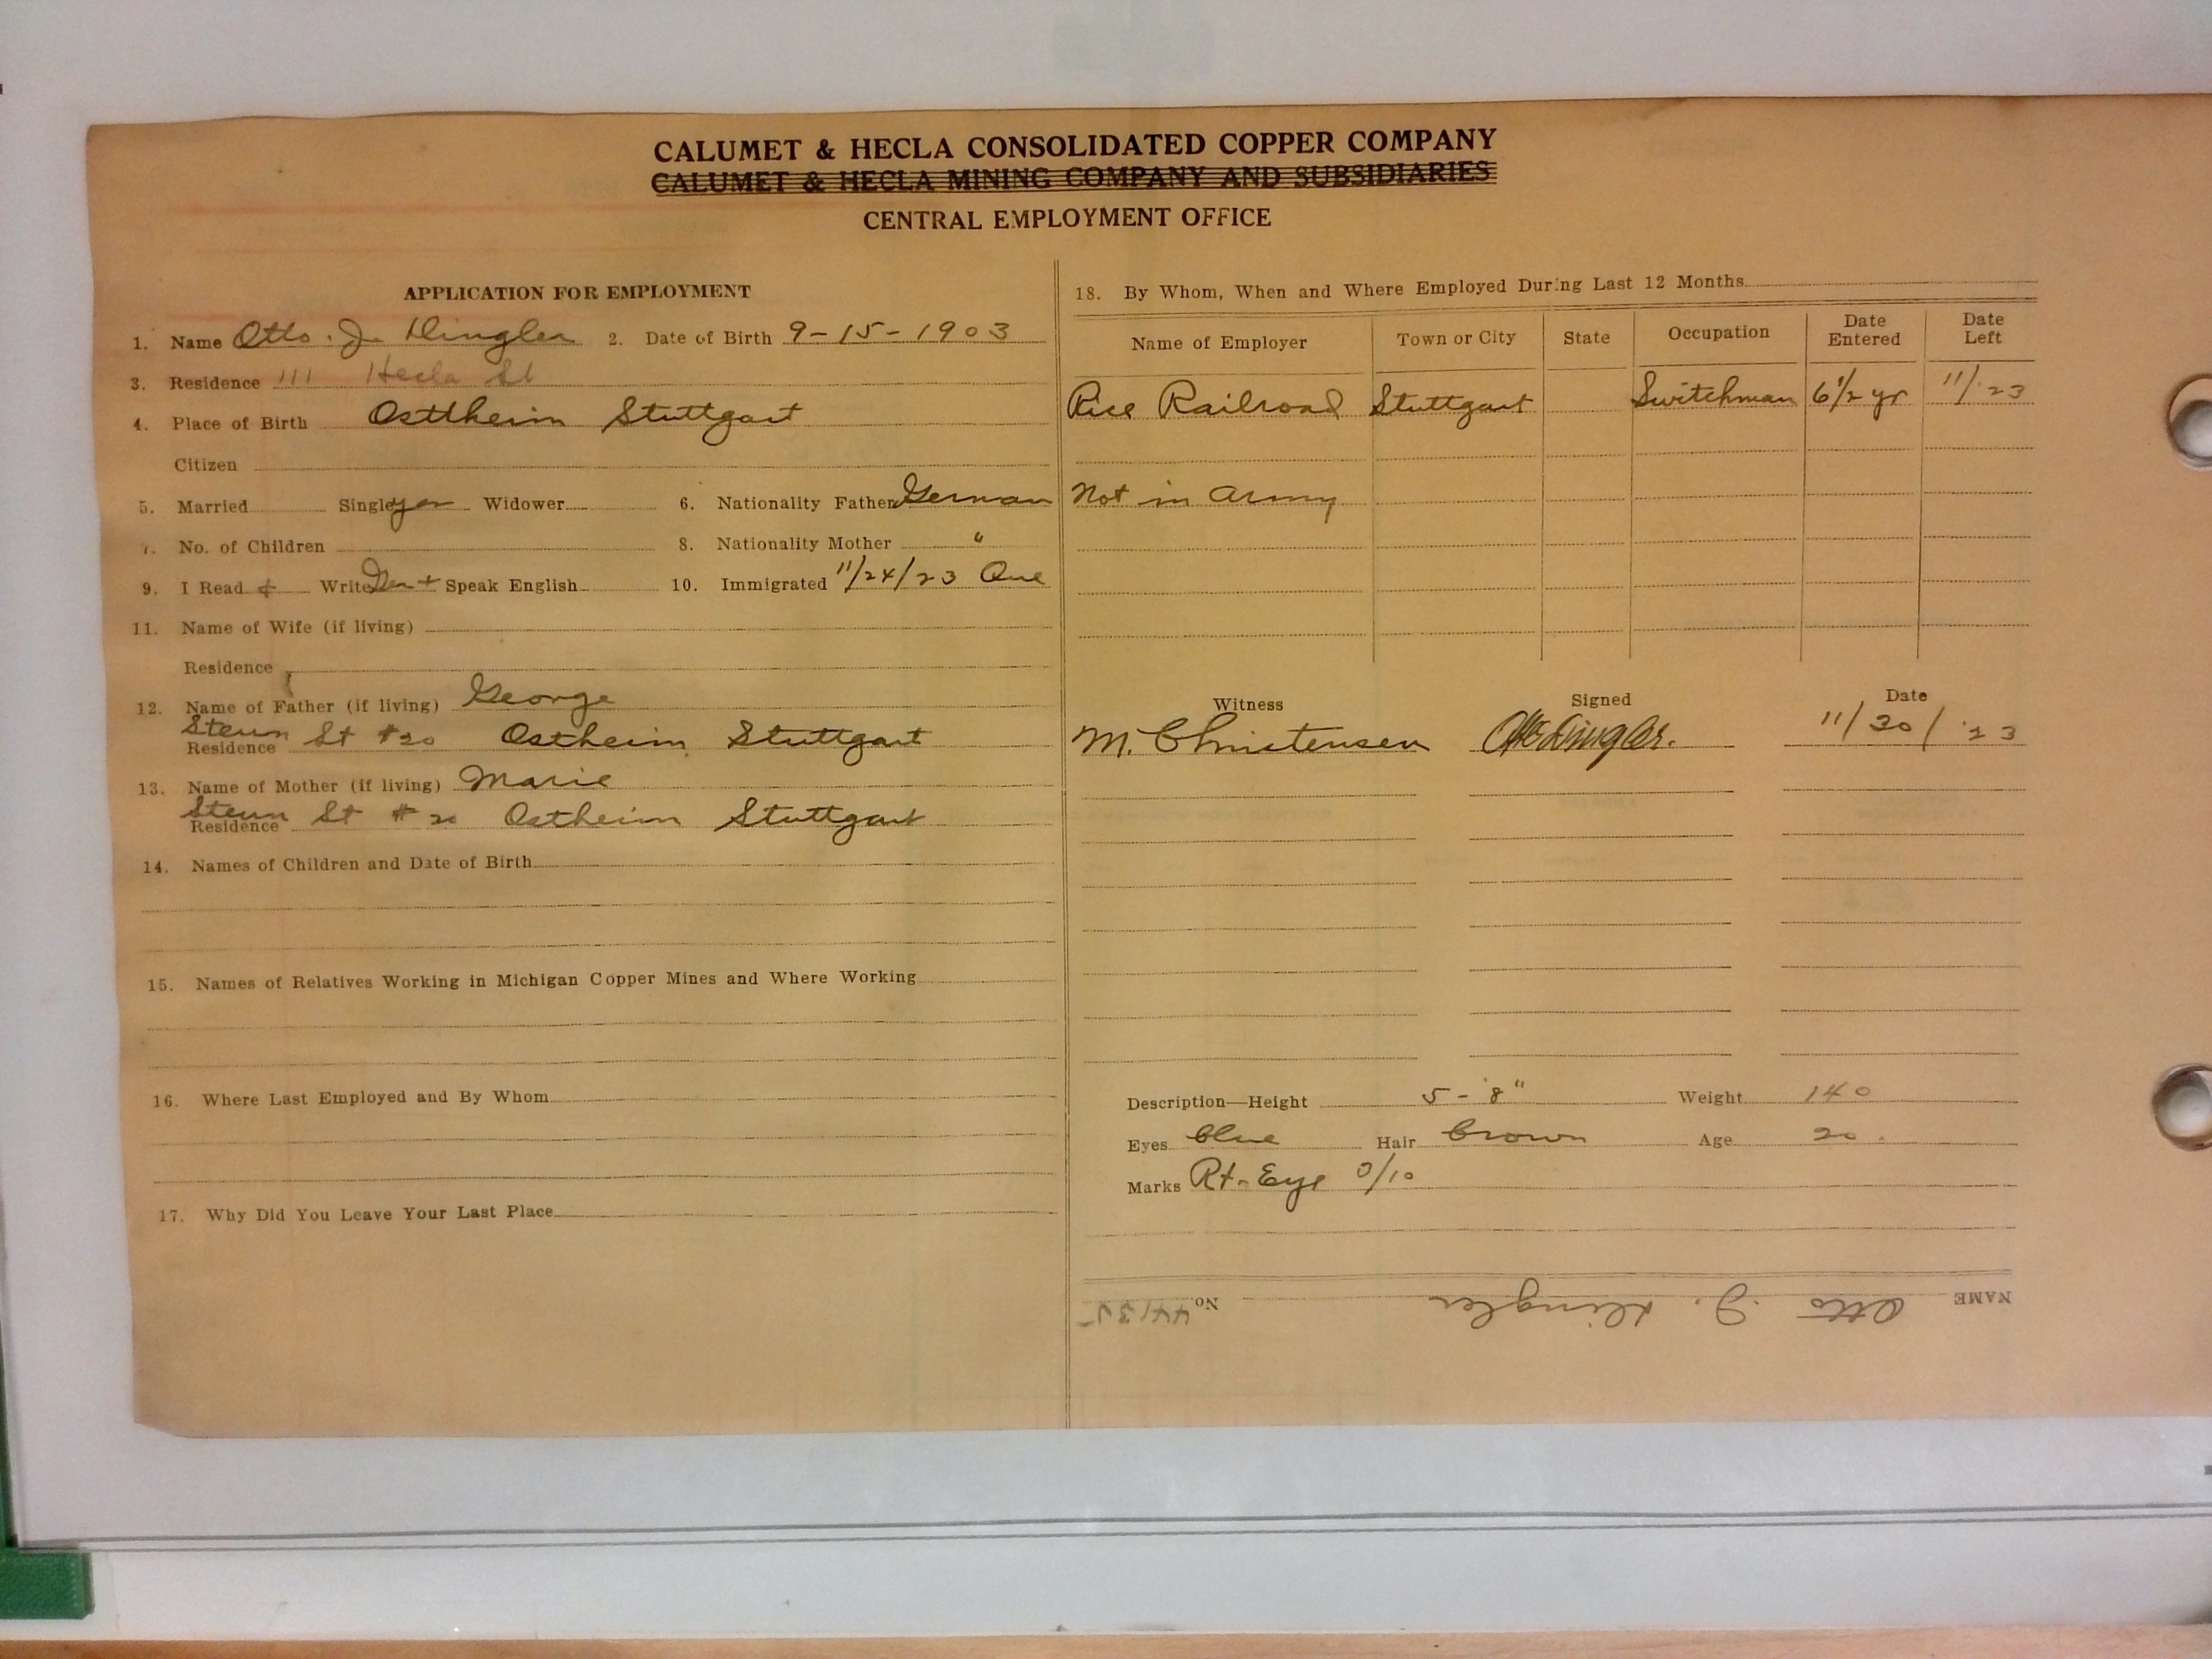 CALUMET & HECLA CONSOLIDATED COPPER COMPANY
CALUMET & HECLA MINING COMPANY AND SUBSIDIARIES
CENTRAL EMPLOYMENT OFFICE
APPLICATION FOR EMPLOYMENT
1. Name Otto. J. Dingler 2. Date of Birth 9-15-1903
3. Residence 111 Hecla St
4. Place of Birth Osttheim Stuttgart
Citizen
5. Married Single yes Widower 6. Nationality Father German
7. No. of Children 8. Nationality Mother "
9. I Read + Write Ger + Speak English 10. Immigrated 11/24/23 Que
11. Name of Wife (if living)
Residence
12. Name of Father (if living) George
Residence Stern St #20 Ostheim Stuttgart
13. Name of Mother (if living) Marie
Residence Stern St #20 Ostheim Stuttgart
14. Names of Children and Date of Birth
15. Names of Relatives Working in Michigan Copper Mines and Where Working
16. Where Last Employed and By Whom
17. Why Did You Leave Your Last Place
18. By Whom, When and Where Employed During Last 12 Months
Name of Employer Town or City State Occupation Date Entered Date Left
Railroad Stuttgart Switchman 6 1/2 yr 11/'23
Not in Army
Witness Signed Date
M. Christensen Otto Dingler. 11/30/'23
Description—Height 5-8" Weight 140
Eyes blue Hair brown Age 20.
Marks Rt-Eye 0/10
NAME Otto J. Dingler No. 44135